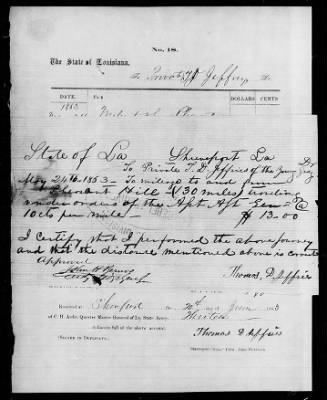 No. 18.
The State of Louisiana.
To Private T D Jeffries Dr
DATE. FOR DOLLARS CENTS
1863
State of La Shreveport La
To Private T. D. Jeffries of the Dr
May 24th 1863 To mileage to and from
Pleasant Hill 130 miles traveling
under orders of the Apt. Agt. Gen @
10 cts per mile — $ 13.00
I certify that I performed the above journey
and that the distance mentioned above is correct
Approved
Thomas D Jeffries
Received at Shreveport June 3
of C. H. Ardis, Quarter Master General of La. State Army,
Thirteen
dollars in full of the above account.
(SIGNED IN DUPLICATE.)
Thomas D Jeffries